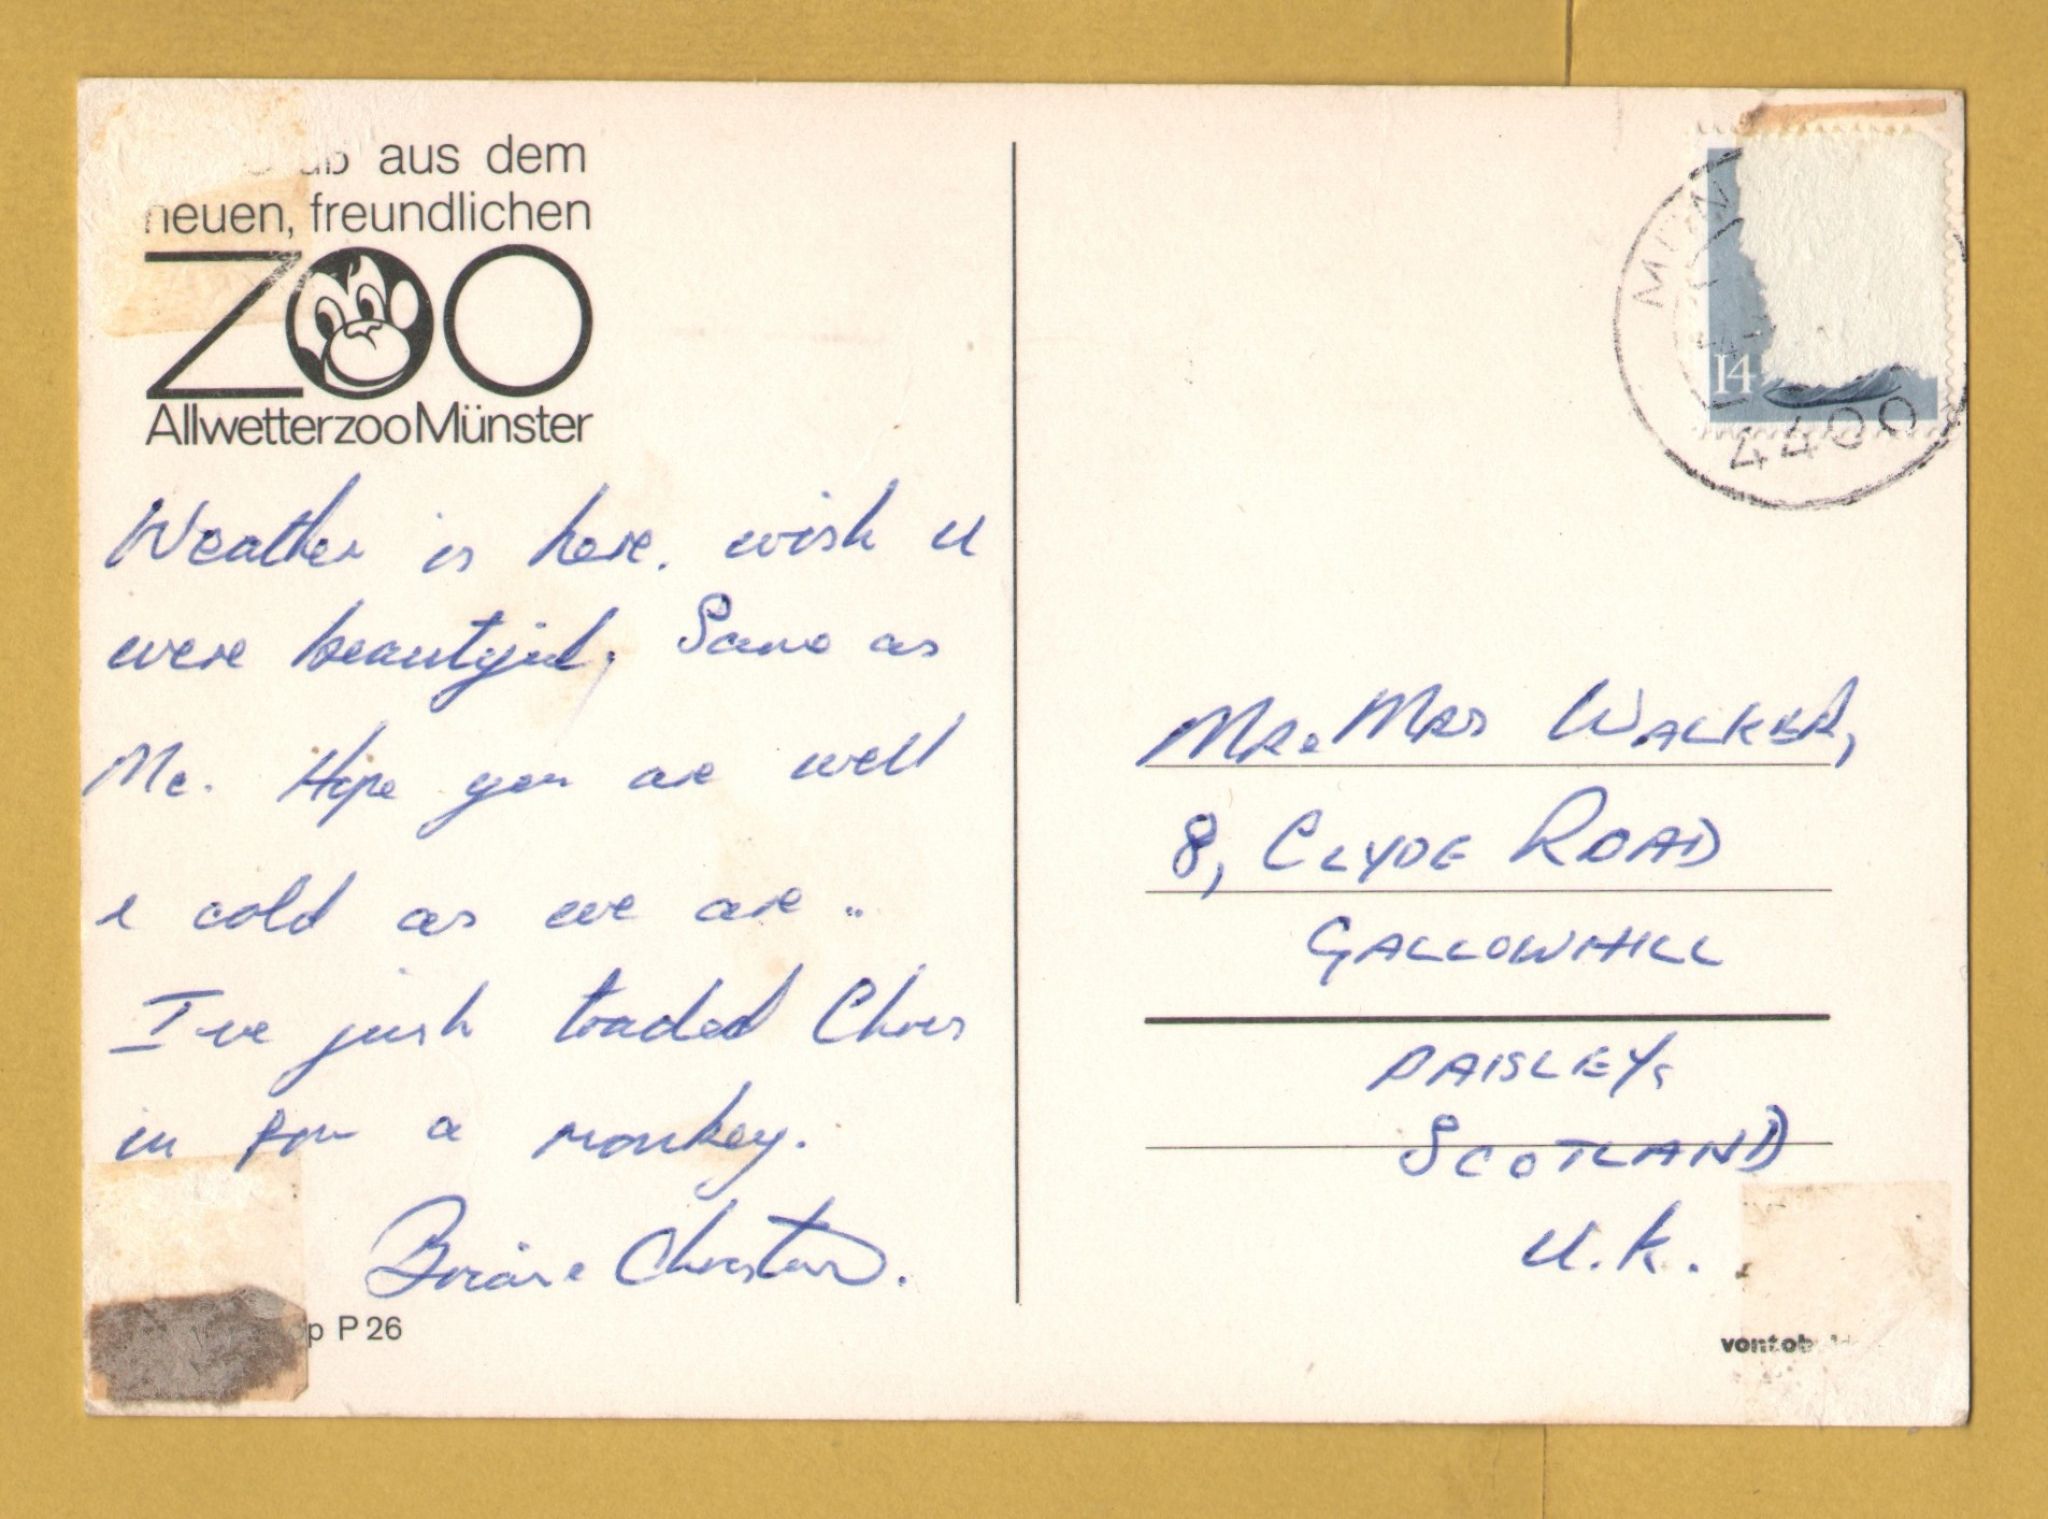 aus dem
neuen, freundlichen
ZOO
AllwetterzooMünster
Weather is here. wish u
were beautiful, Same as
Me. Hope you are well
& cold as we are ..
I've just traded Chris
in for a monkey.
Brian &
P 26
14
4400
Mr. Mrs Walker,
8, Clyde Road
Gallowhill
Paisley,
Scotland
U.K.